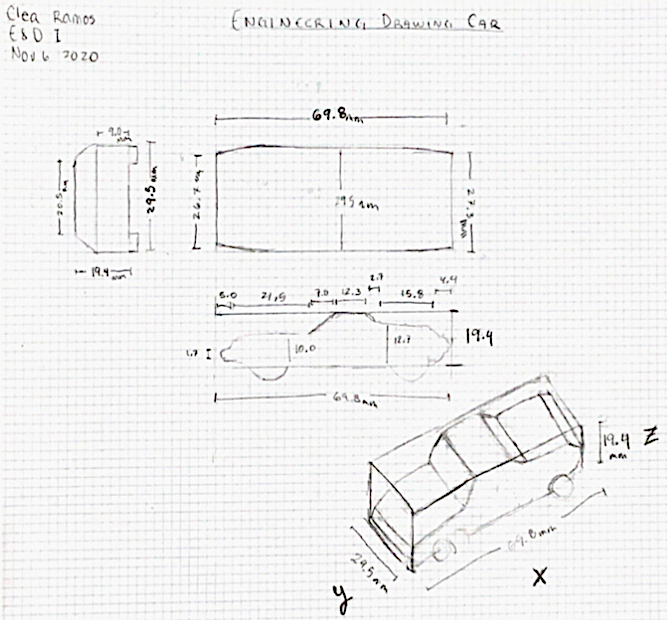 Clea Ramos
E&D I
Nov 6 2020
ENGINEERING DRAWING CAR
69.8mm
9.0
mm
20.5mm
29.5mm
19.4mm
26.7mm
29.5mm
27.3mm
5.0
21.5
7.0
12.3
2.7
15.8
4.4
1.7
10.0
12.7
19.4
69.8mm
19.4
mm
Z
29.5mm
69.8mm
y
X